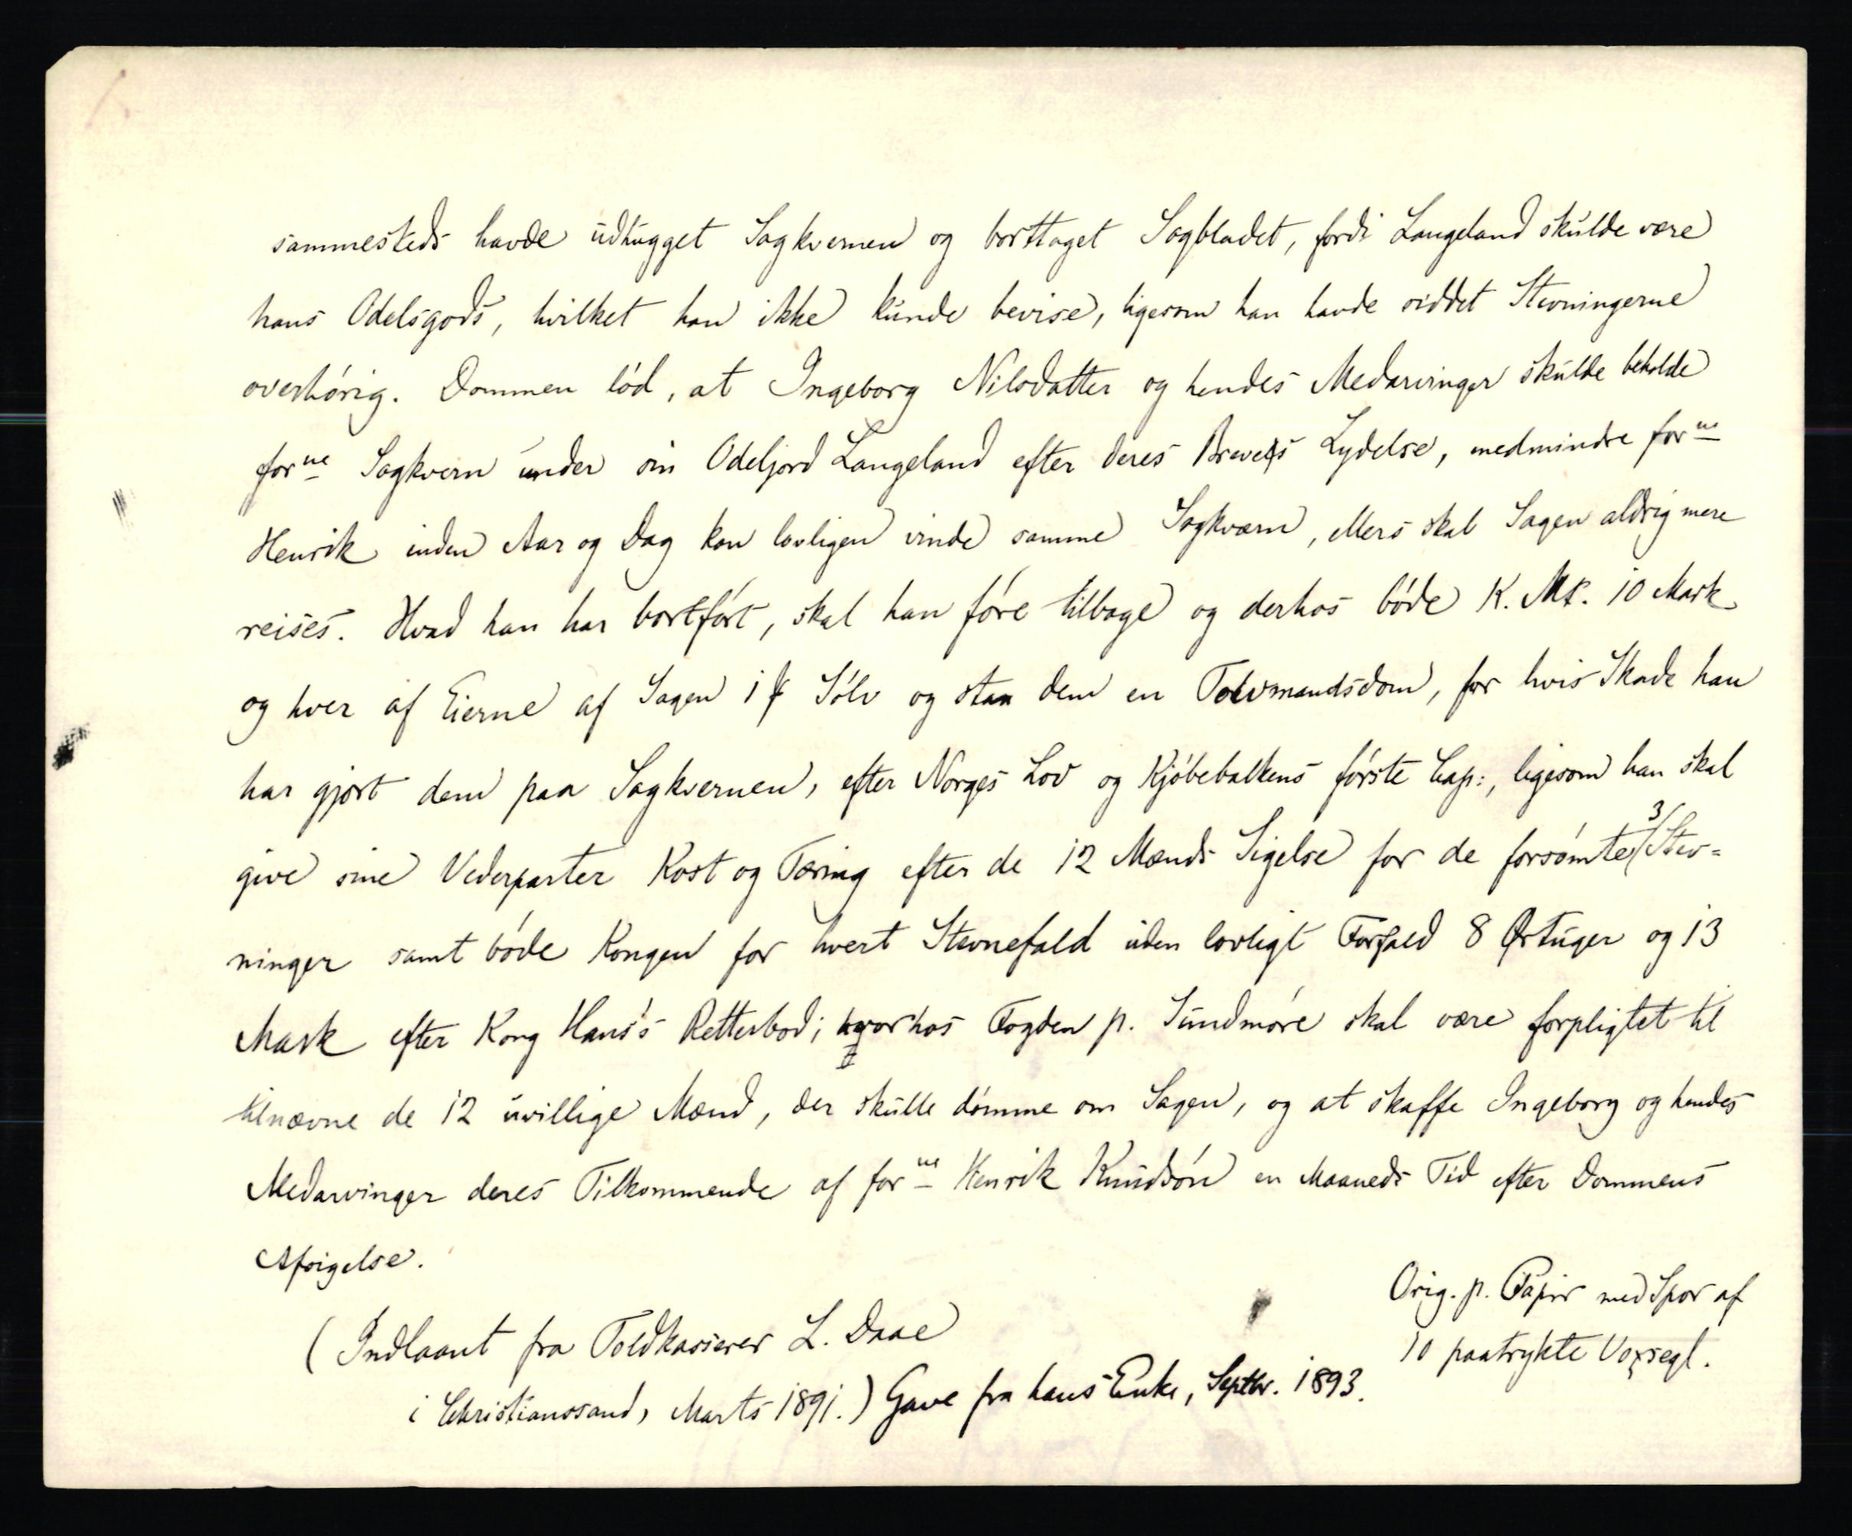 sammesteds havde udhugget Sagkvernen og borttaget Sagbladet, fordi Langeland skulde være
hans Odelsgods, hvilket han ikke kunde bevise, ligesom han havde siddet Stevningerne
overhórig. Dommen lód, at Ingeborg Nilsdatter og hendes Medarvinger skulde beholde
forne Sagkvern under sin Odeljord Langeland efter deres Breves Lydelse, medmindre forne
Henrik inden Aar og Dag kan lovligen vinde samme Sagkværn, ellers skal Sagen aldrig mere
reises. Hvad han har bortfórt, skal han fóre tilbage og derhos bóde K. Mt. 10 Mark
og hver af Eierne af Sagen 1 Sólv og staa dem en Tolvmandsdom, for hvis Skade han
har gjort dem paa Sagkvernen, efter Norges Lov og Kjóbebalkens fórste Cap:, ligesom han skal
give sine Vederparter Kost og Tæring efter de 12 Mænds Sigelse for de forsómte 3 Stev-
ninger samt bóde Kongen for hvert Stevnefald uden lovligt Forfald 8 Ørtuger og 13
Mark efter Kong Hans's Retterbod; hvorhos Fogden p. Sundmóre skal være forpligtet til
tilnævne de 12 uvillige Mænd, der skulle dómme om Sagen, og at skaffe Ingeborg og hendes
Medarvinger deres Tilkommende af forne Henrik Knudsón en Maaneds Tid efter Dommens
Afsigelse.
Orig. p. Papir med Spor af
10 paatrykte Voxsegl.
(Indlaant fra Toldkasserer L. Daae
i Christianssand, Marts 1891.) Gave fra hans Enke, Septbr. 1893.